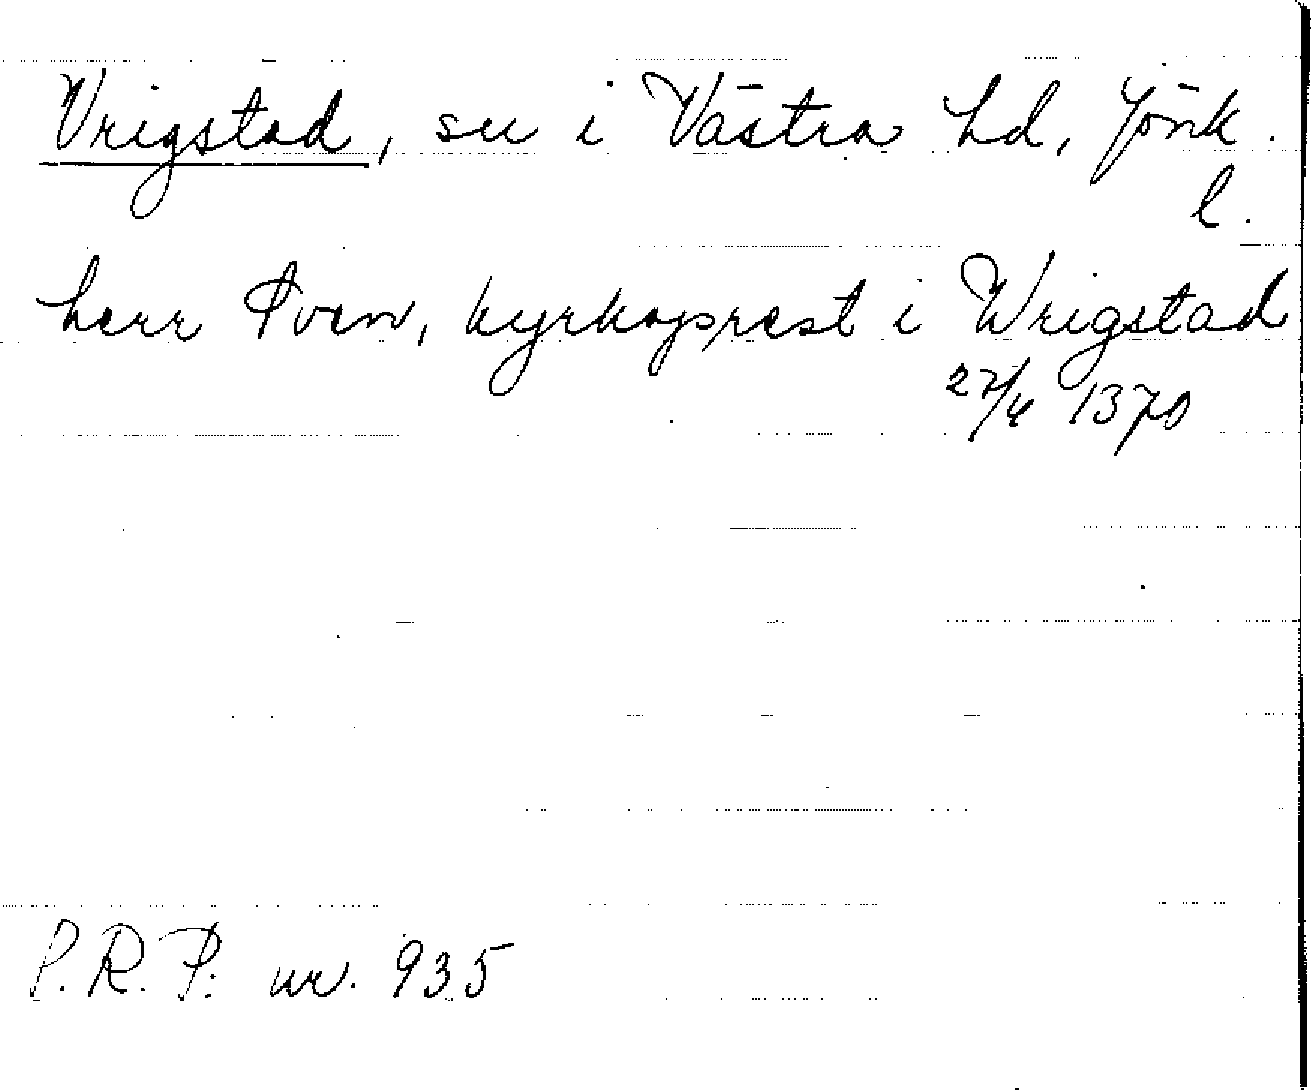 Vrigstad, sn i Västra hd, Jönk.
l.
herr Sven, kyrkoprest i Wrigstad
27/4 1370
P.R.P. nr. 935